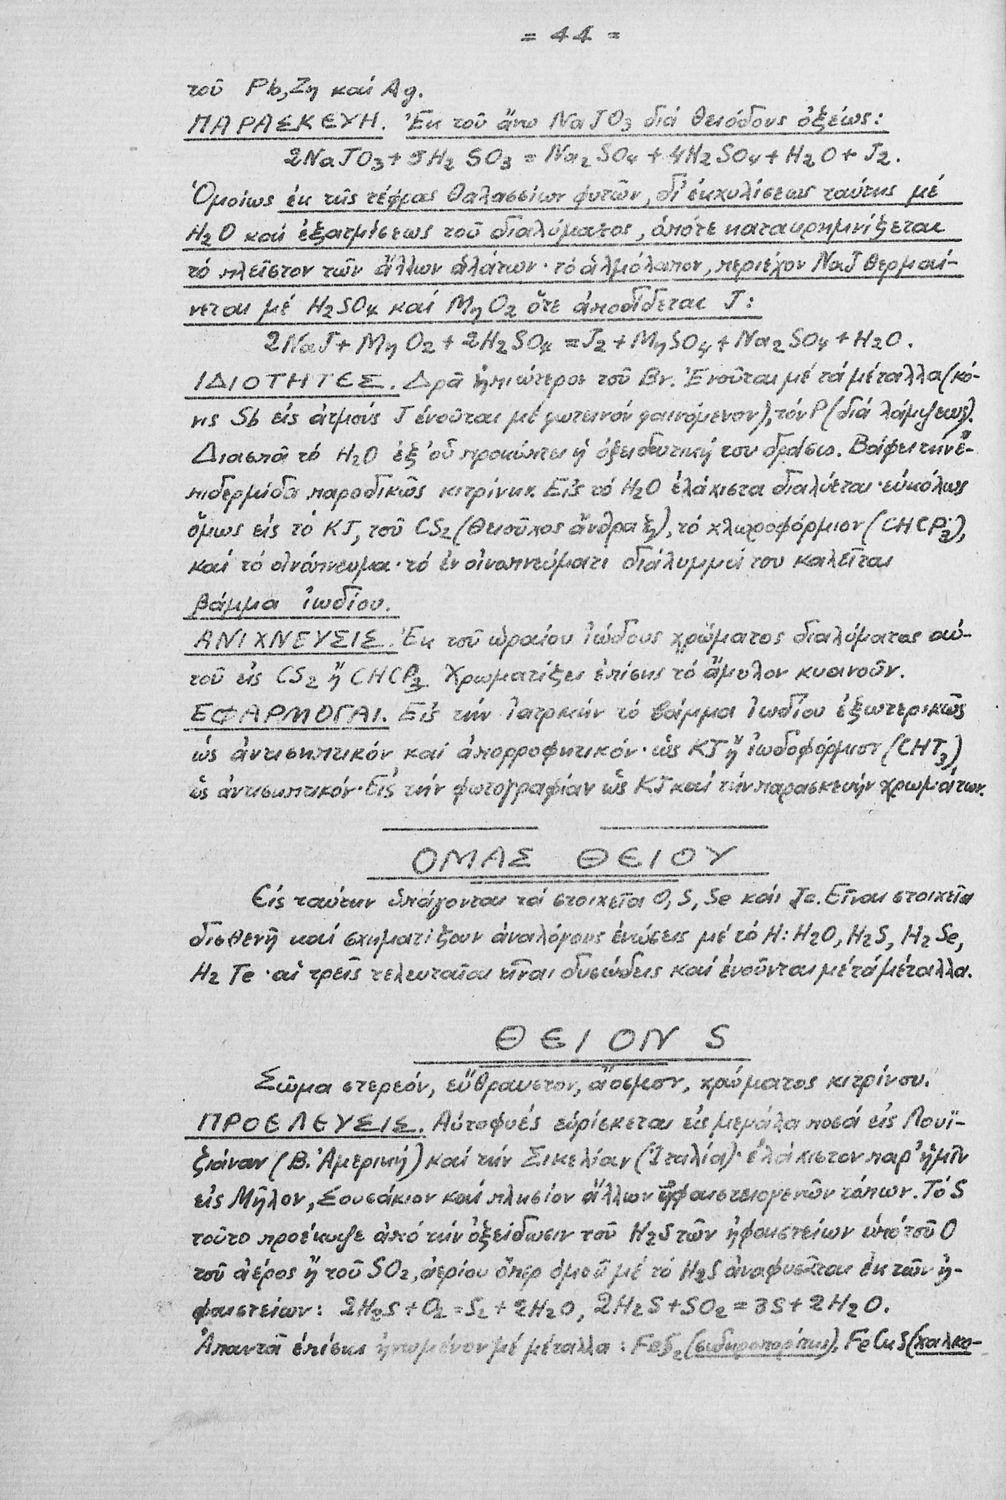 = 44 =
τοῦ Pb, Zn καί Ag.
ΠΑΡΑΣΚΕΥΗ. Ἐκ τοῦ ἄνω NaJO3 διά θειόδους ὀξέως:
2NaJO3 + 5H2SO3 = Na2SO4 + 4H2SO4 + H2O + J2.
Ὁμοίως ἐκ τῆς τέφρας θαλασσίων φυτῶν, δι' ἐκχυλίσεως ταύτης μέ
H2O καί ἐξατμίσεως τοῦ διαλύματος, ὁπότε κατακρημνίζεται
τό πλεῖστον τῶν ἄλλων ἁλάτων· τό ἁλμόλοιπον, περιέχον NaJ θερμαί-
νεται μέ H2SO4 καί MnO2 ὅτε ἀποδίδεται J:
2NaJ + MnO2 + 2H2SO4 = J2 + MnSO4 + Na2SO4 + H2O.
ΙΔΙΟΤΗΤΕΣ. Δρᾶ ἠπιώτερον τοῦ Br. Ἑνοῦται μέ τά μέταλλα (κό-
νις Sb εἰς ἀτμούς J ἑνοῦται μέ φωτεινόν φαινόμενον), τόν P (διά λάμψεως).
Διασπᾶ τό H2O ἐξ' οὗ προκύπτει ἡ ὀξειδωτική του δρᾶσις. Βάφει τήν ἐ-
πιδερμίδα παροδικῶς κιτρίνην. Εἰς τό H2O ἐλάχιστα διαλύεται· εὐκόλως
ὅμως εἰς τό KJ, τοῦ CS2 (θειοῦχος ἄνθραξ), τό χλωροφόρμιον (CHCP3),
καί τό οἰνόπνευμα· τό ἐν οἰνοπνεύματι διάλυμμά του καλεῖται
βάμμα ἰωδίου.
ΑΝΙΧΝΕΥΣΙΣ. Ἐκ τοῦ ὡραίου ἰώδους χρώματος διαλύματος αὐ-
τοῦ εἰς CS2 ἤ CHCP3. Χρωματίζει ἐπίσης τό ἄμυλον κυανοῦν.
ΕΦΑΡΜΟΓΑΙ. Εἰς τήν Ἰατρικήν τό βάμμα ἰωδίου ἐξωτερικῶς
ὡς ἀντισηπτικόν καί ἀπορροφητικόν· ὡς KJ ἤ ἰωδοφόρμιον (CHJ3)
ὡς ἀντισηπτικόν· Εἰς τήν φωτογραφίαν ὡς KJ καί τήν παρασκευήν χρωμάτων.
ΟΜΑΣ ΘΕΙΟΥ
Εἰς ταύτην ὑπάγονται τά στοιχεῖα O, S, Se καί Te. Εἶναι στοιχεῖα
δισθενῆ καί σχηματίζουν ἀναλόγους ἑνώσεις μέ τό H: H2O, H2S, H2Se,
H2Te· αἱ τρεῖς τελευταῖαι εἶναι δυσώδεις καί ἑνοῦνται μέ τά μέταλλα.
ΘΕΙΟΝ S
Σῶμα στερεόν, εὔθραυστον, ἄοσμον, χρώματος κιτρίνου.
ΠΡΟΕΛΕΥΣΙΣ. Αὐτοφυές εὑρίσκεται εἰς μεγάλα ποσά εἰς Λουϊ-
ζιάναν (Β. Ἀμερική) καί τήν Σικελίαν (Ἰταλία)· ἐλάχιστον παρ' ἡμῖν
εἰς Μῆλον, Σουσάκιον καί πλησίον ἄλλων ἡφαιστειογενῶν τόπων. Τό S
τοῦτο προέκυψε ἀπό τήν ὀξείδωσιν τοῦ H2S τῶν ἡφαιστείων ὑπό τοῦ O
τοῦ ἀέρος ἤ τοῦ SO2, ἀερίου ὅπερ ὁμοῦ μέ τό H2S ἀναφυσᾶται ἐκ τῶν ἡ-
φαιστείων: 2H2S + O2 = S2 + 2H2O, 2H2S + SO2 = 3S + 2H2O.
Ἀπαντᾶ ἐπίσης ἡνωμένον μέ μέταλλα: FeS2 (σιδηροπυρίτης), FeCuS (χαλκο-